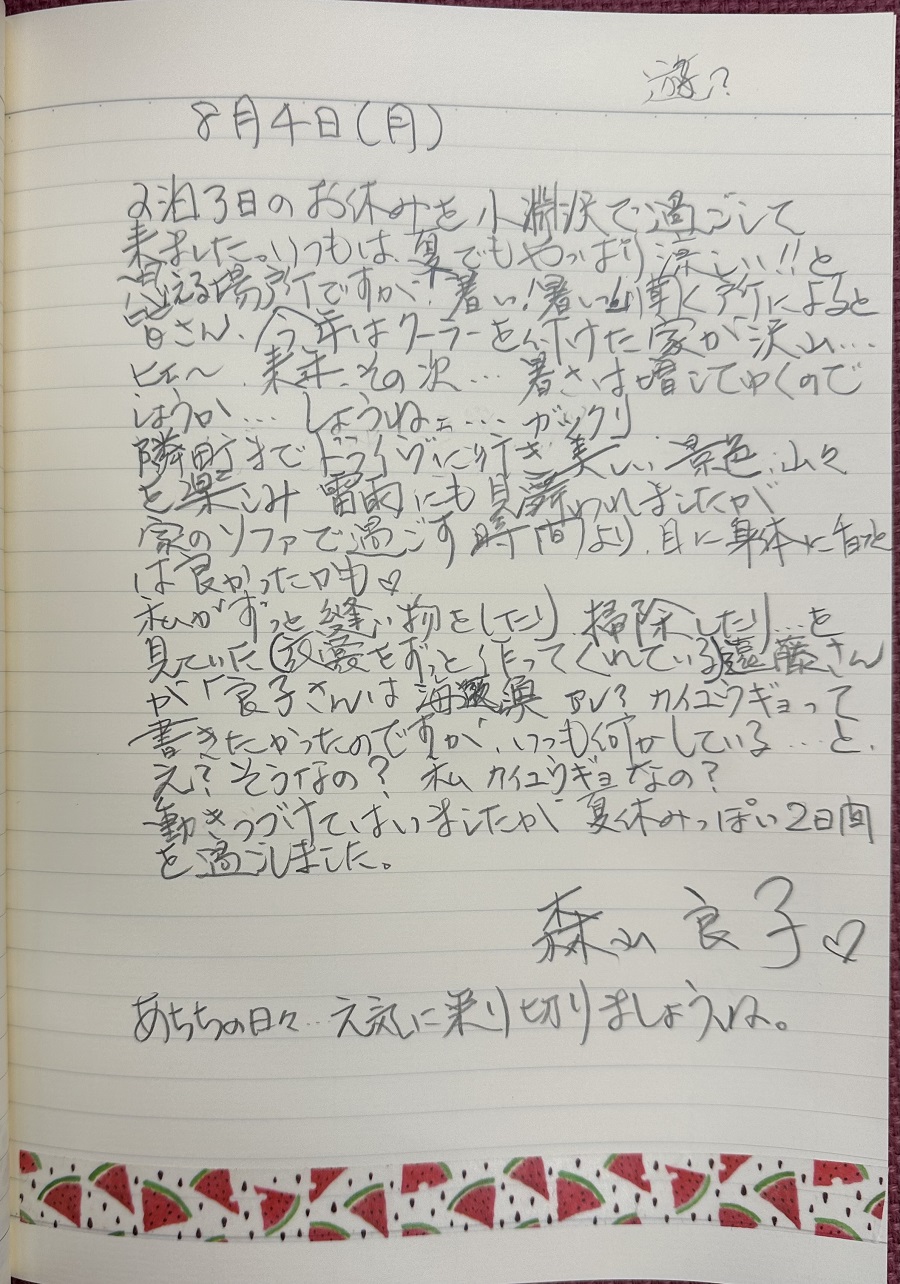 遊?
8月4日(月)
2泊3日のお休みを小淵沢で過ごして
来ました。いつもは、夏でもやっぱり涼しい!!と
言える場所ですが、暑い!暑い!聞く所によると
皆さん、今年はクーラーを付けた家が沢山…
ヒェ〜、来年、その次… 暑さは増してゆくので
しょうか… しょうねェ… ガックリ
隣町までドライヴに行き美しい景色、山々
を楽しみ 雷雨にも見舞われましたが
家のソファで過ごす時間より、目に身体に
は良かったかも♡
私がずっと縫い物をしたり、掃除したり…を
見ていた(をずっと作ってくれている)遠藤さん
が「良子さんは 海 カイユウギョって
書きたかったのですが、いつも何かしている…と、
え?そうなの? 私 カイユウギョなの?
動きつづけてはいましたが 夏休みっぽい2日間
を過ごしました。
森山 良子♡
あちちの日々… 元気に乗り切りましょうね。